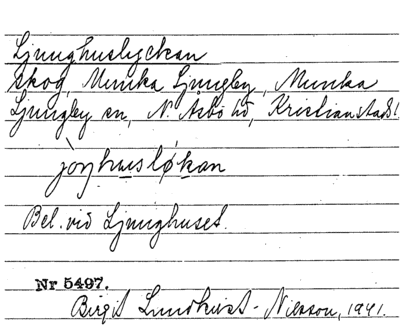 Ljunghuslyckan
skog, Munka Ljungby, Munka
Ljungby sn, N. Åsbo hd, Kristianstads l.
jòŋhu̱sløk̠an
Bel. vid Ljunghuset.
Nr 5497.
Birgit Lundkvist-Nilsson, 1941.